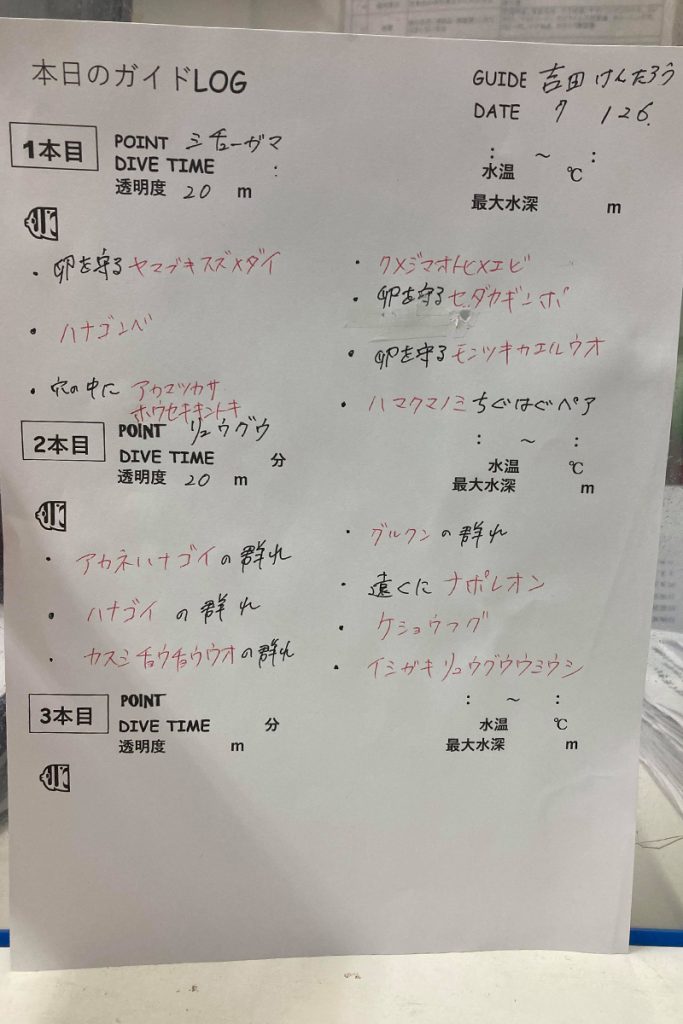 本日のガイドLOG
GUIDE 吉田 けんたろう
DATE 7 / 26.
1本目
POINT ミチューガマ
DIVE TIME :
透明度 20 m
: ～ :
水温 ℃
最大水深 m
・卵を守るヤマブキスズメダイ
・ハナゴンベ
・穴の中に アカマツカサ
ホウセキキントキ
・クメジマオトヒメエビ
・卵を守るセダカギンポ
・卵を守るモンツキカエルウオ
・ハマクマノミちぐはぐペア
2本目
POINT リュウグウ
DIVE TIME 分
透明度 20 m
: ～ :
水温 ℃
最大水深 m
・アカネハナゴイの群れ
・ハナゴイの群れ
・カスミチョウチョウウオの群れ
・グルクンの群れ
・遠くにナポレオン
・ケショウフグ
・イシガキリュウグウウミウシ
3本目
POINT
DIVE TIME 分
透明度 m
: ～ :
水温 ℃
最大水深 m